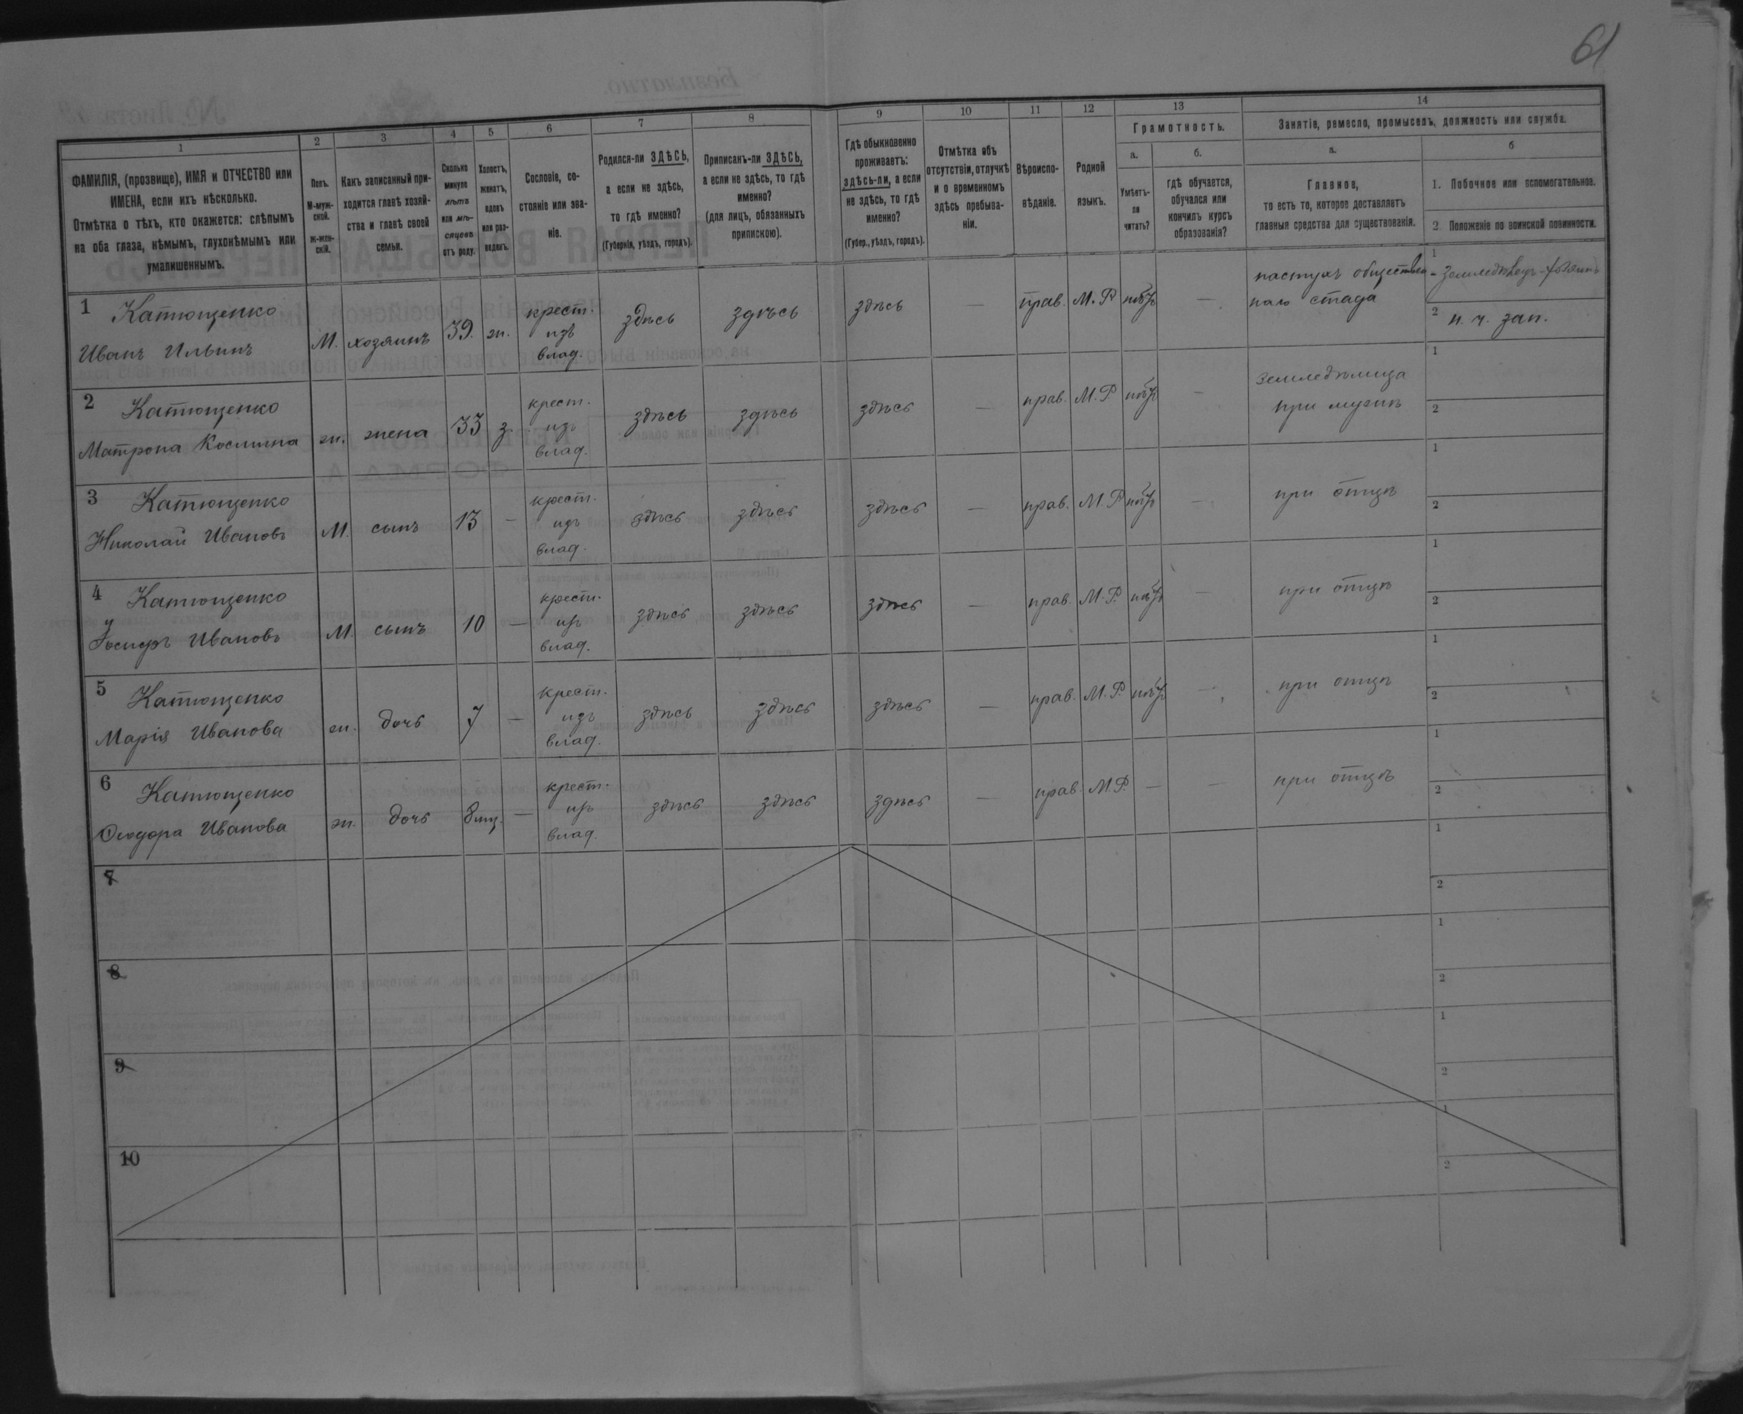 61
1
ФАМИЛІЯ, (прозвище), ИМЯ и ОТЧЕСТВО или
ИМЕНА, если ихъ нѣсколько.
Отмѣтка о тѣхъ, кто окажется: слѣпымъ
на оба глаза, нѣмымъ, глухонѣмымъ или
умалишеннымъ.
2
Полъ.
М-муж-
ской.
Ж-жен-
скій.
3
Какъ записанный при-
ходится главѣ хозяй-
ства и главѣ своей
семьи.
4
Сколько
минуло
лѣтъ
или мѣ-
сяцевъ
отъ роду.
5
Холостъ,
женатъ,
вдовъ
или раз-
веденъ.
6
Сословіе, со-
стояніе или зва-
ніе.
7
Родился-ли ЗДѢСЬ,
а если не здѣсь,
то гдѣ именно?
(Губернія, уѣздъ, городъ).
8
Приписанъ-ли ЗДѢСЬ,
а если не здѣсь, то гдѣ
именно?
(для лицъ, обязанныхъ
припискою).
9
Гдѣ обыкновенно
проживаетъ:
здѣсь-ли, а если
не здѣсь, то гдѣ
именно?
(Губер., уѣздъ, городъ).
10
Отмѣтка объ
отсутствіи, отлучкѣ
и о временномъ
здѣсь пребыва-
ніи.
11
Вѣроиспо-
вѣданіе.
12
Родной
языкъ.
13
Грамотность.
а.
Умѣетъ-
ли
читать?
б.
гдѣ обучается,
обучался или
кончилъ курсъ
образованія?
14
Занятіе, ремесло, промыселъ, должность или служба.
а.
Главное,
то есть то, которое доставляетъ
главныя средства для существованія.
б
1. Побочное или вспомогательное.
2 Положеніе по воинской повинности.
1 Катющенко
Иванъ Ильинъ
М. хозяинъ 39. ж.
крест.
изъ
влад.
здѣсь здѣсь здѣсь — прав. М.Р. —
пастухъ обществен-
наго стада
1
2 н. ч. зап.
2 Катющенко
Матрона
ж. жена 33 з.
крест.
изъ
влад.
здѣсь здѣсь здѣсь — прав. М.Р. —
земледѣлица
при мужѣ
1
2
3 Катющенко
Николай Ивановъ
М. сынъ 13 —
крест.
изъ
влад.
здѣсь здѣсь здѣсь — прав. М.Р. — при отцѣ
1
2
4 Катющенко
Іосифъ Ивановъ
М. сынъ 10 —
крест.
изъ
влад.
здѣсь здѣсь здѣсь — прав. М.Р. — при отцѣ
1
2
5 Катющенко
Марія Иванова
ж. дочь 7 —
крест.
изъ
влад.
здѣсь здѣсь здѣсь — прав. М.Р. — при отцѣ
1
2
6 Катющенко
Ѳеодора Иванова
ж. дочь 8 мц. —
крест.
изъ
влад.
здѣсь здѣсь здѣсь — прав. М.Р. — — при отцѣ
1
2
7
1
2
8
1
2
9
1
2
10
1
2